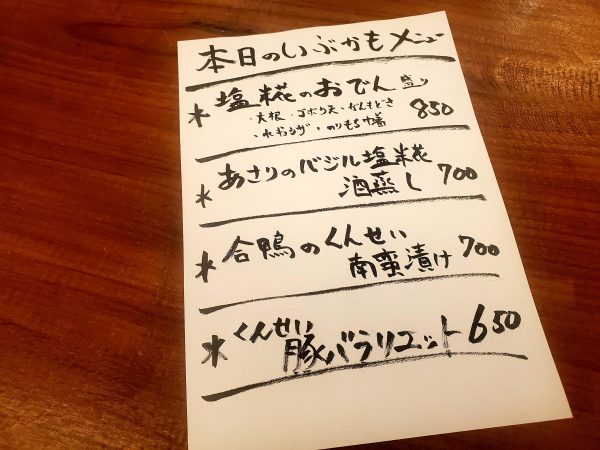 本日のいぶかもメニュー
* 塩糀のおでん 盛り 850
・大根・ゴボウ天・がんもどき
・のりもち巾着
* あさりのバジル塩糀
酒蒸し 700
* 合鴨のくんせい
南蛮漬け 700
* くんせい
豚バラリエット 650